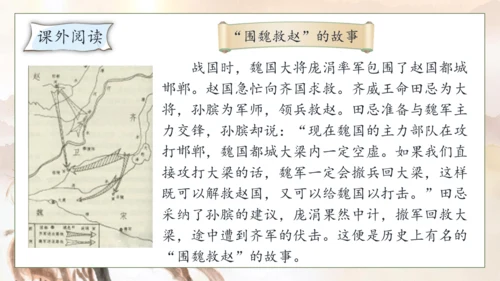 课外阅读
“围魏救赵”的故事
战国时，魏国大将庞涓率军包围了赵国都城
邯郸。赵国急忙向齐国求救。齐威王命田忌为大
将，孙膑为军师，领兵救赵。田忌准备与魏军主
力交锋，孙膑却说：“现在魏国的主力部队在攻
打邯郸，魏国都城大梁内一定空虚。如果我们直
接攻打大梁的话，魏军一定会撤兵回大梁，这样
既可以解救赵国，又可以给魏国以打击。”田忌
采纳了孙膑的建议，庞涓果然中计，撤军回救大
梁，途中遭到齐军的伏击。这便是历史上有名的
“围魏救赵”的故事。
赵
齐
卫
魏
宋